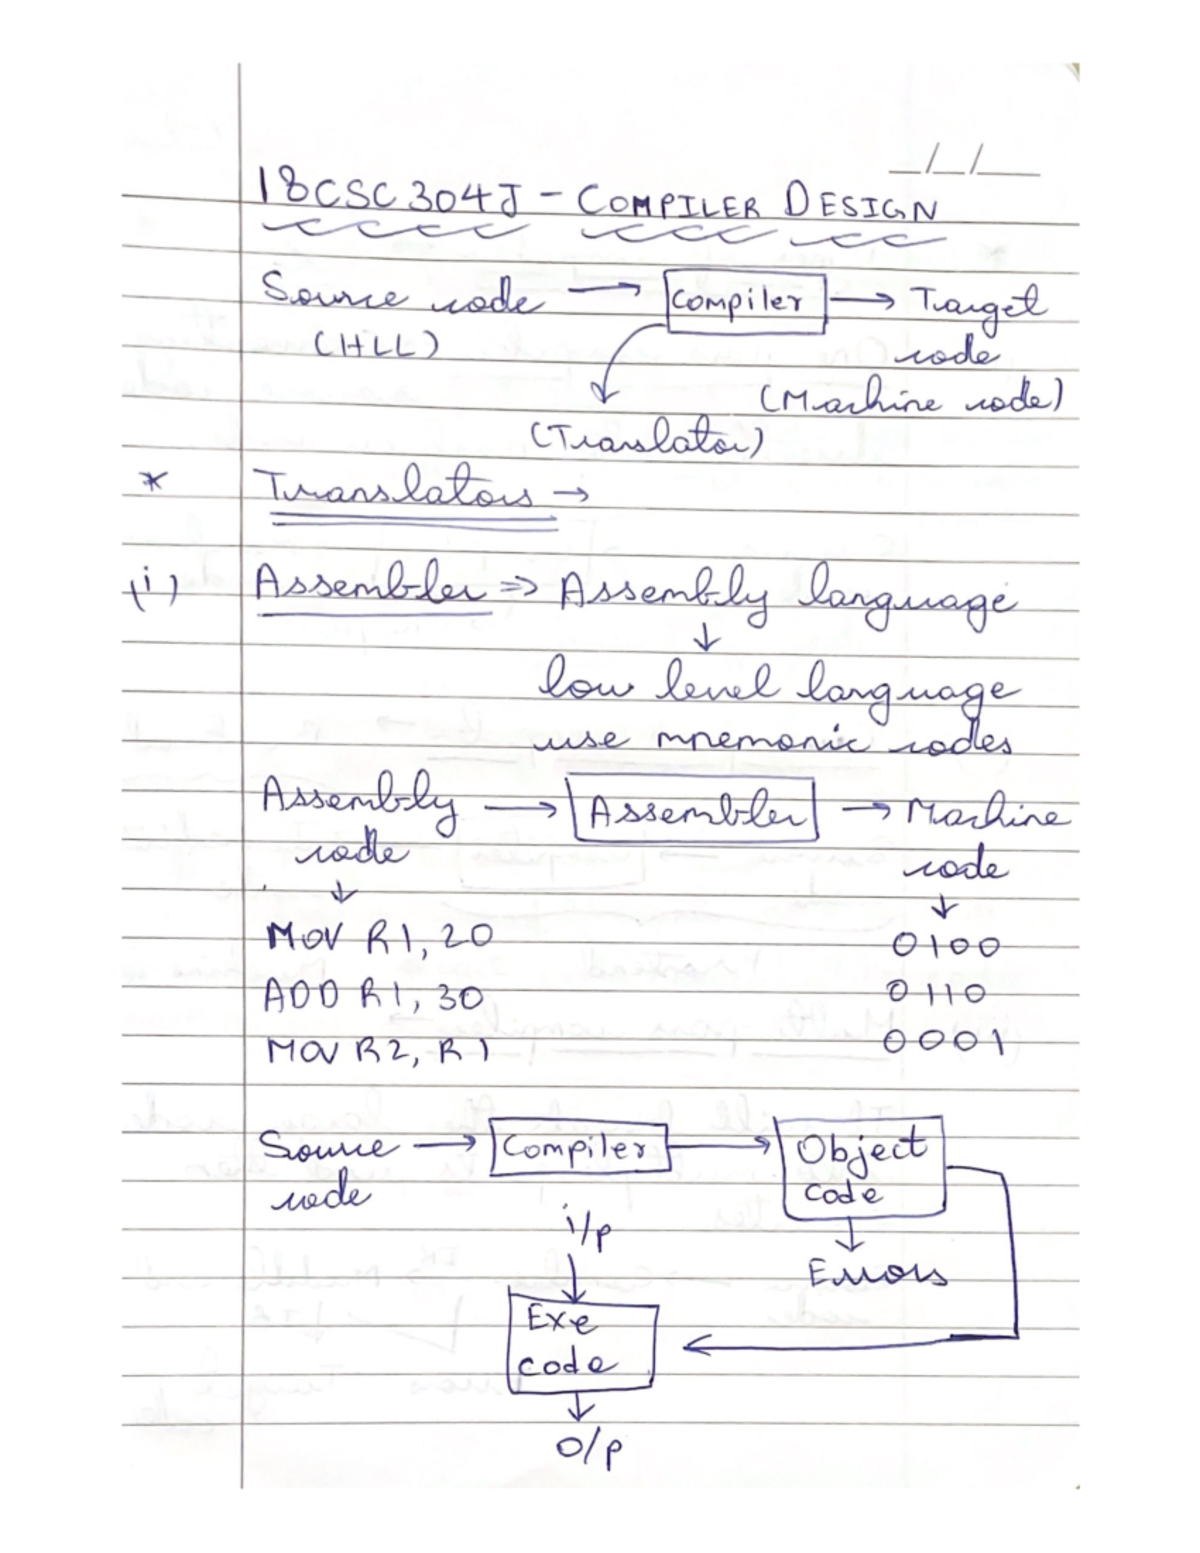 _/_/_
18CSC304J - COMPILER DESIGN
Source code → Compiler → Target
(HLL) code
(Machine code)
(Translator)
* Translators →
(i) Assembler ⇒ Assembly language
↓
low level language
use mnemonic codes
Assembly → Assembler → Machine
code code
↓ ↓
MOV R1, 20 0100
ADD R1, 30 0110
MOV R2, R1 0001
Source → Compiler → Object
code code
i/p ↓
↓ Errors
Exe ←
code
↓
O/p